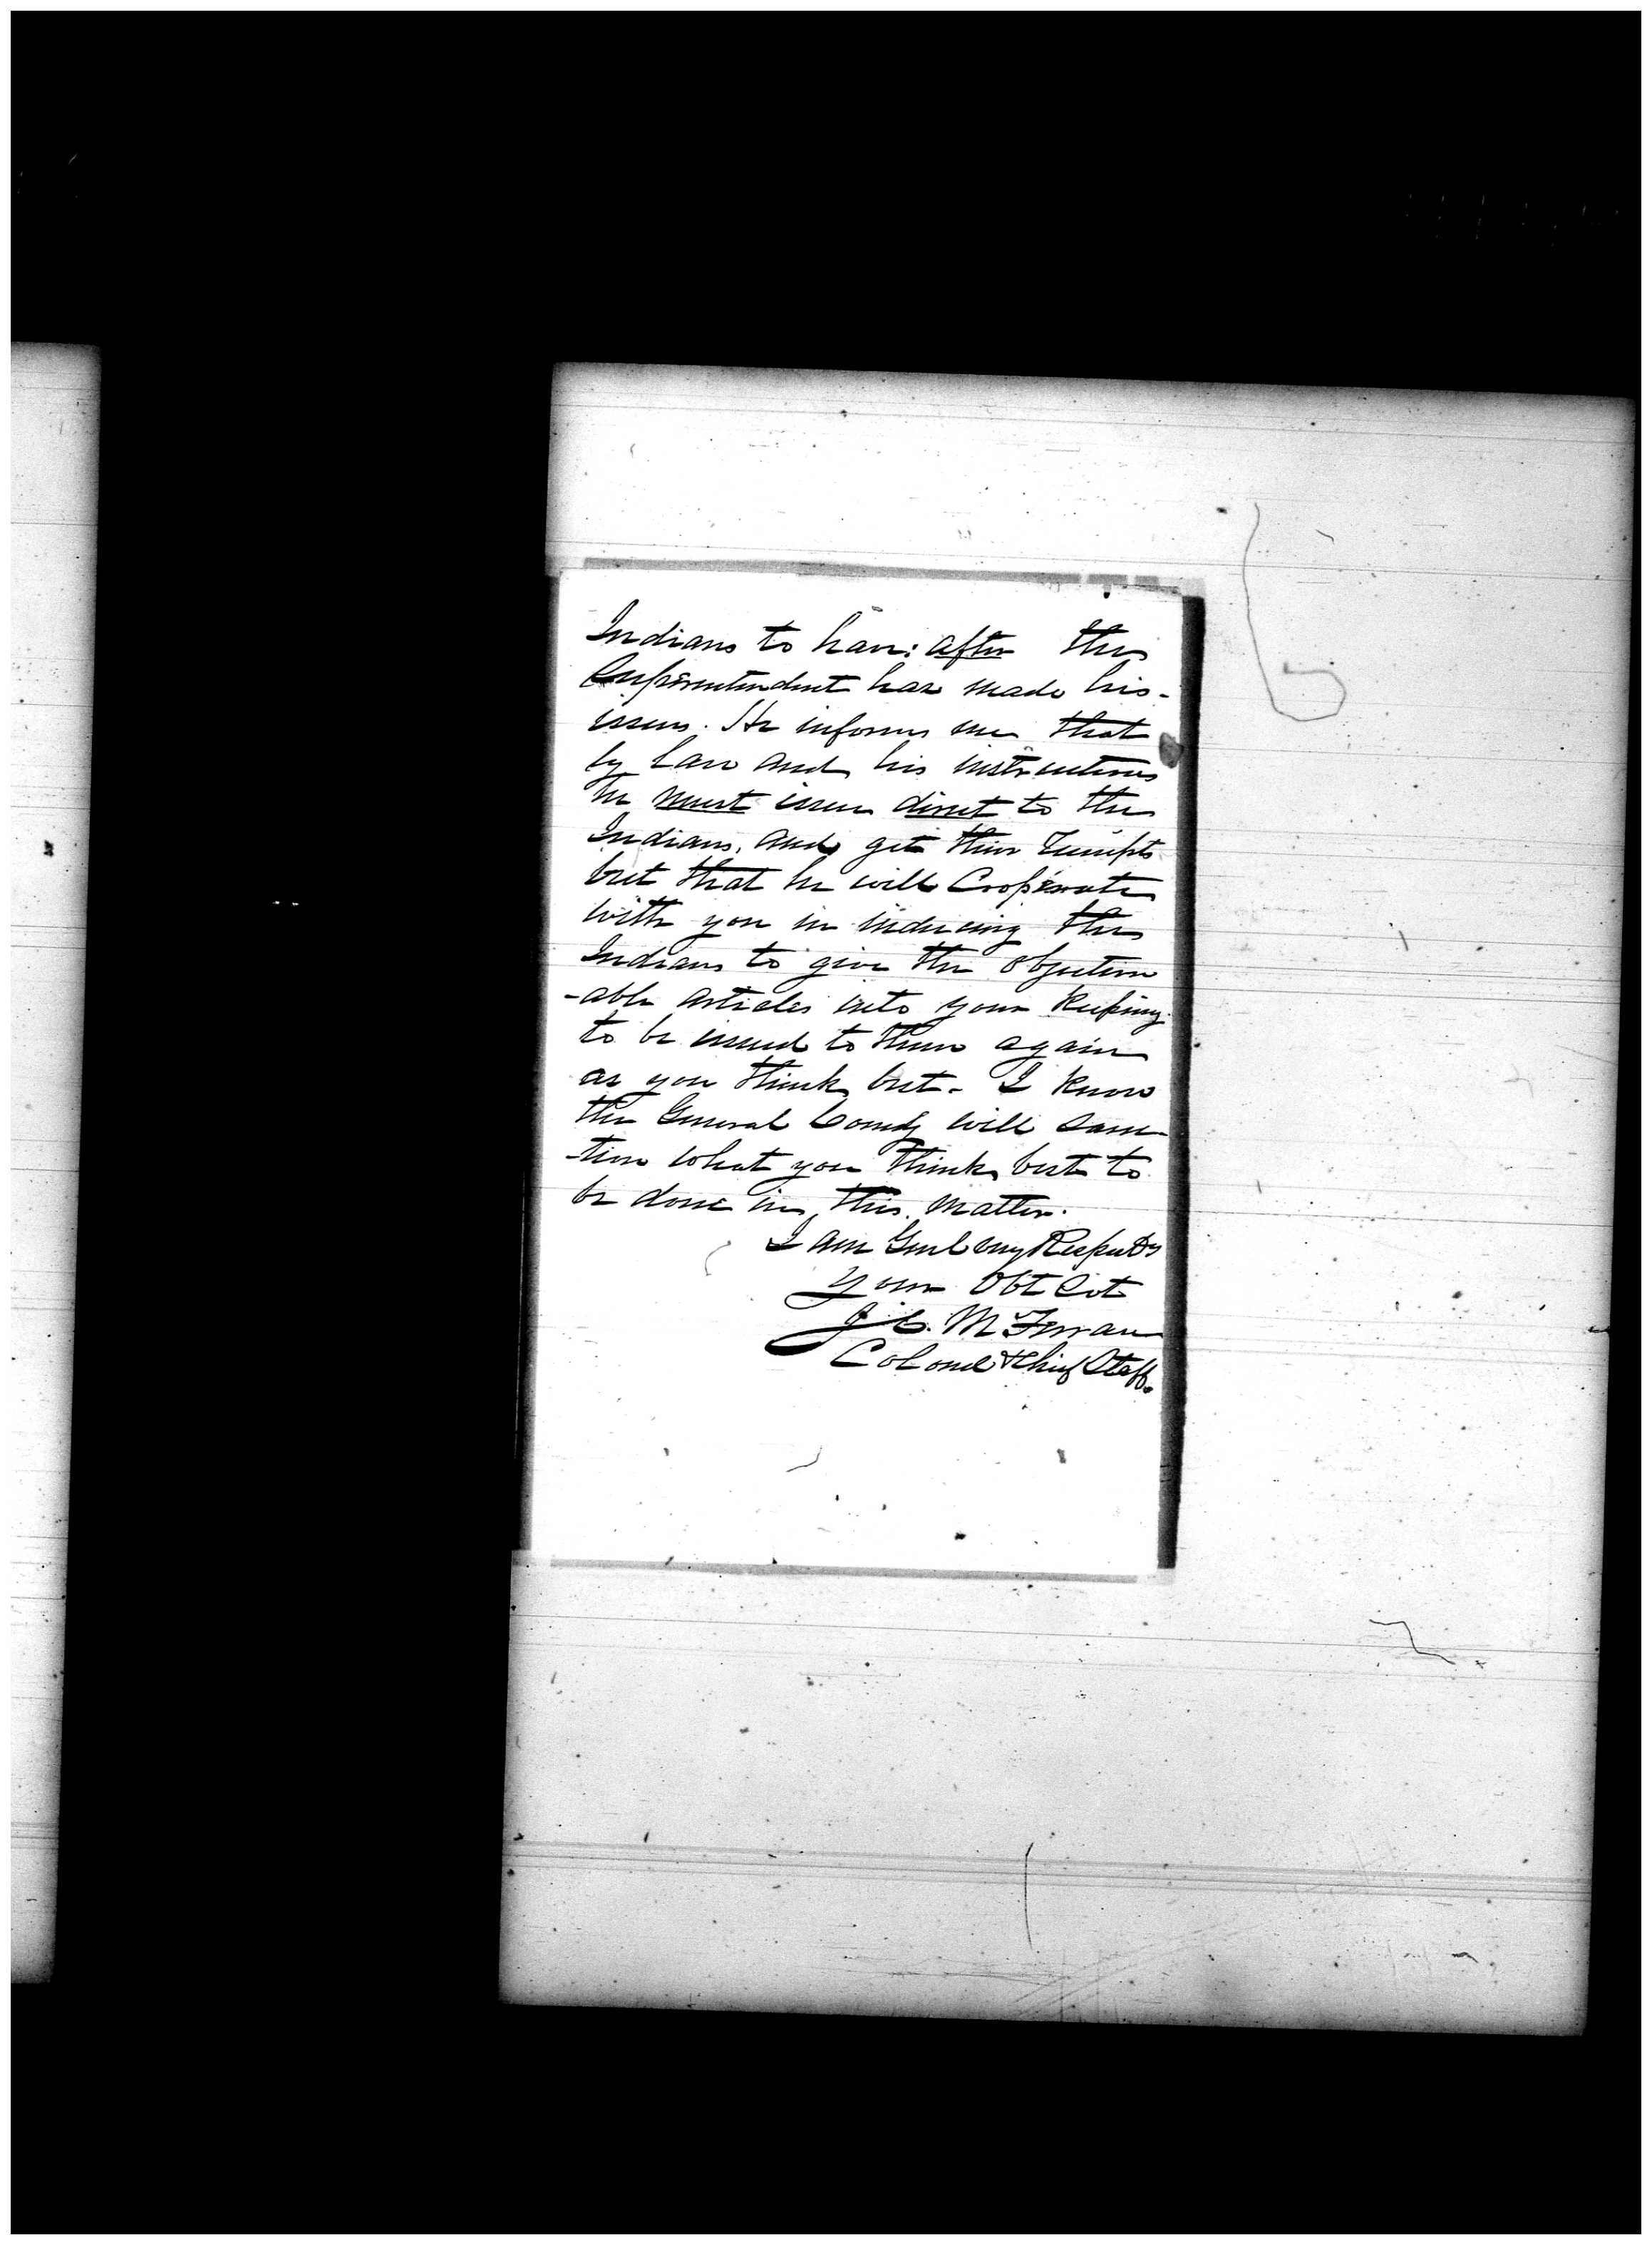 Indians to have: after the
Superintendent has made his
issues. He informs me that
by Law and his instructions
he must issue direct to the
Indians, and get their receipts
but that he will Cooperate
with you in inducing the
Indians to give the objection
-able articles into your keeping
to be issued to them again
as you think best. I know
the General Comdg will sanc-
-tion what you think best to
be done in this matter.
I am Genl very Respectfy
Your Obt Svt
J. C. McFerran
Colonel & Chief Staff.